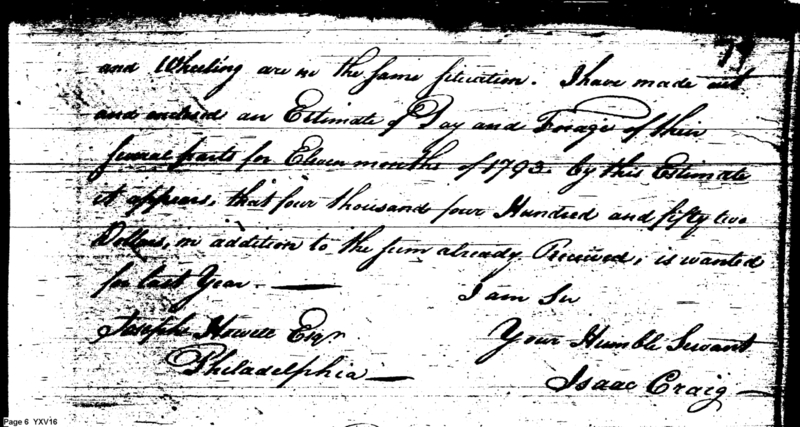 79
and Wheeling are in the same situation. I have made out
and enclosed an Estimate of Pay and Forage of their
several parts for Eleven months of 1793. by this Estimate
it appears, that four thousand four Hundred and fifty two
Dollars, in addition to the sum already Received, is wanted
for last Year. —
I am Sir
Joseph Howell Esqr
Your Humble Servant
Philadelphia —
Isaac Craig —
Page 6 YXV16